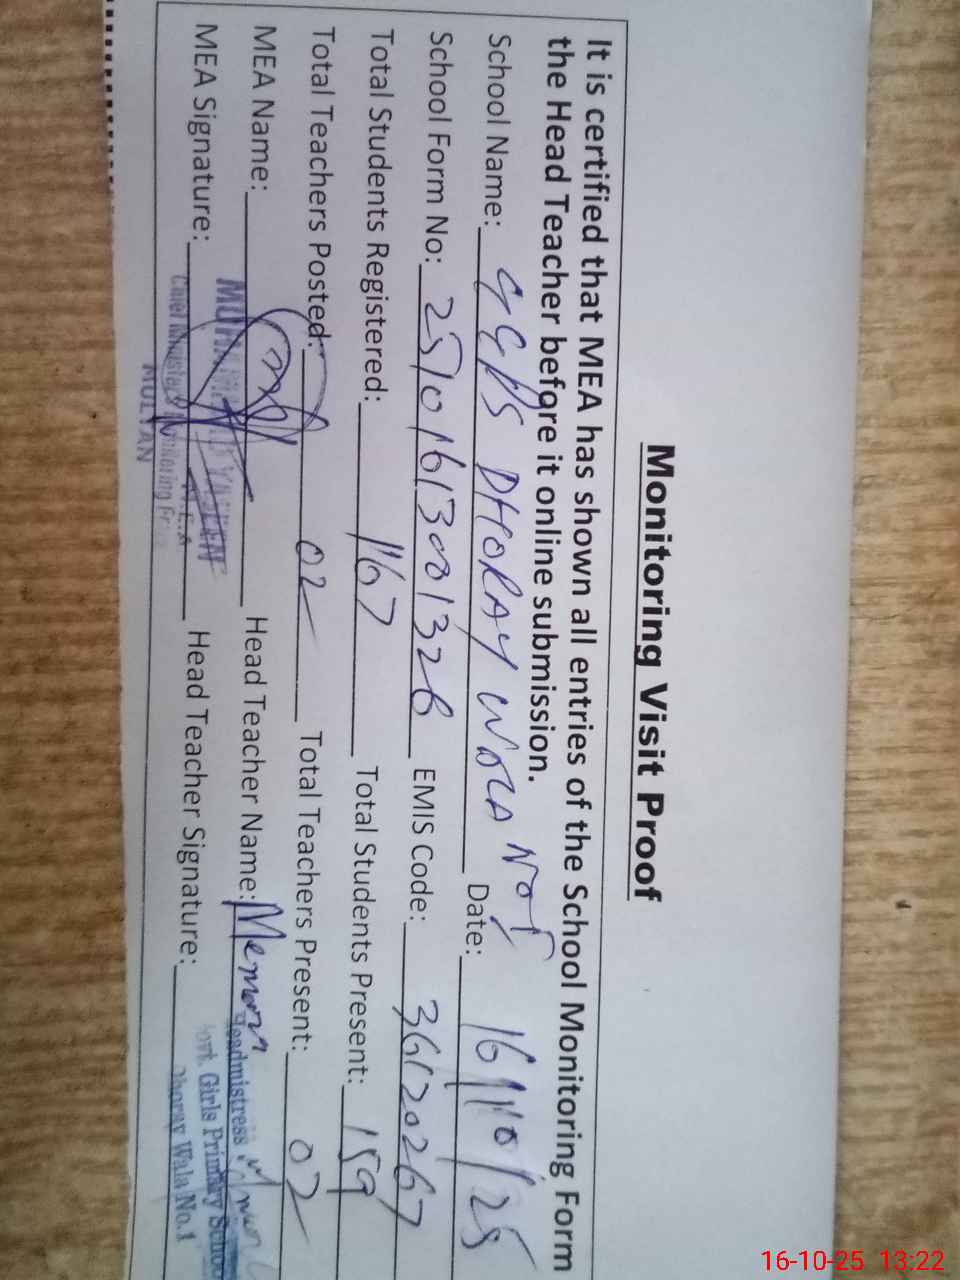 Monitoring Visit Proof
It is certified that MEA has shown all entries of the School Monitoring Form
the Head Teacher before it online submission.
School Name: GGPS DHORAY WALA NO1 Date: 16/10/25
School Form No: 25101613001326 EMIS Code: 36120267
Total Students Registered: 167 Total Students Present: 159
Total Teachers Posted: 02 Total Teachers Present: 02
MEA Name: MUHAMMAD YASEEN Head Teacher Name: Memon
MEA Signature: Head Teacher Signature:
Chief Minister's Monitoring Force
MULTAN
Headmistress
Govt. Girls Primary School
Dhoray Wala No.1
16-10-25 13:22